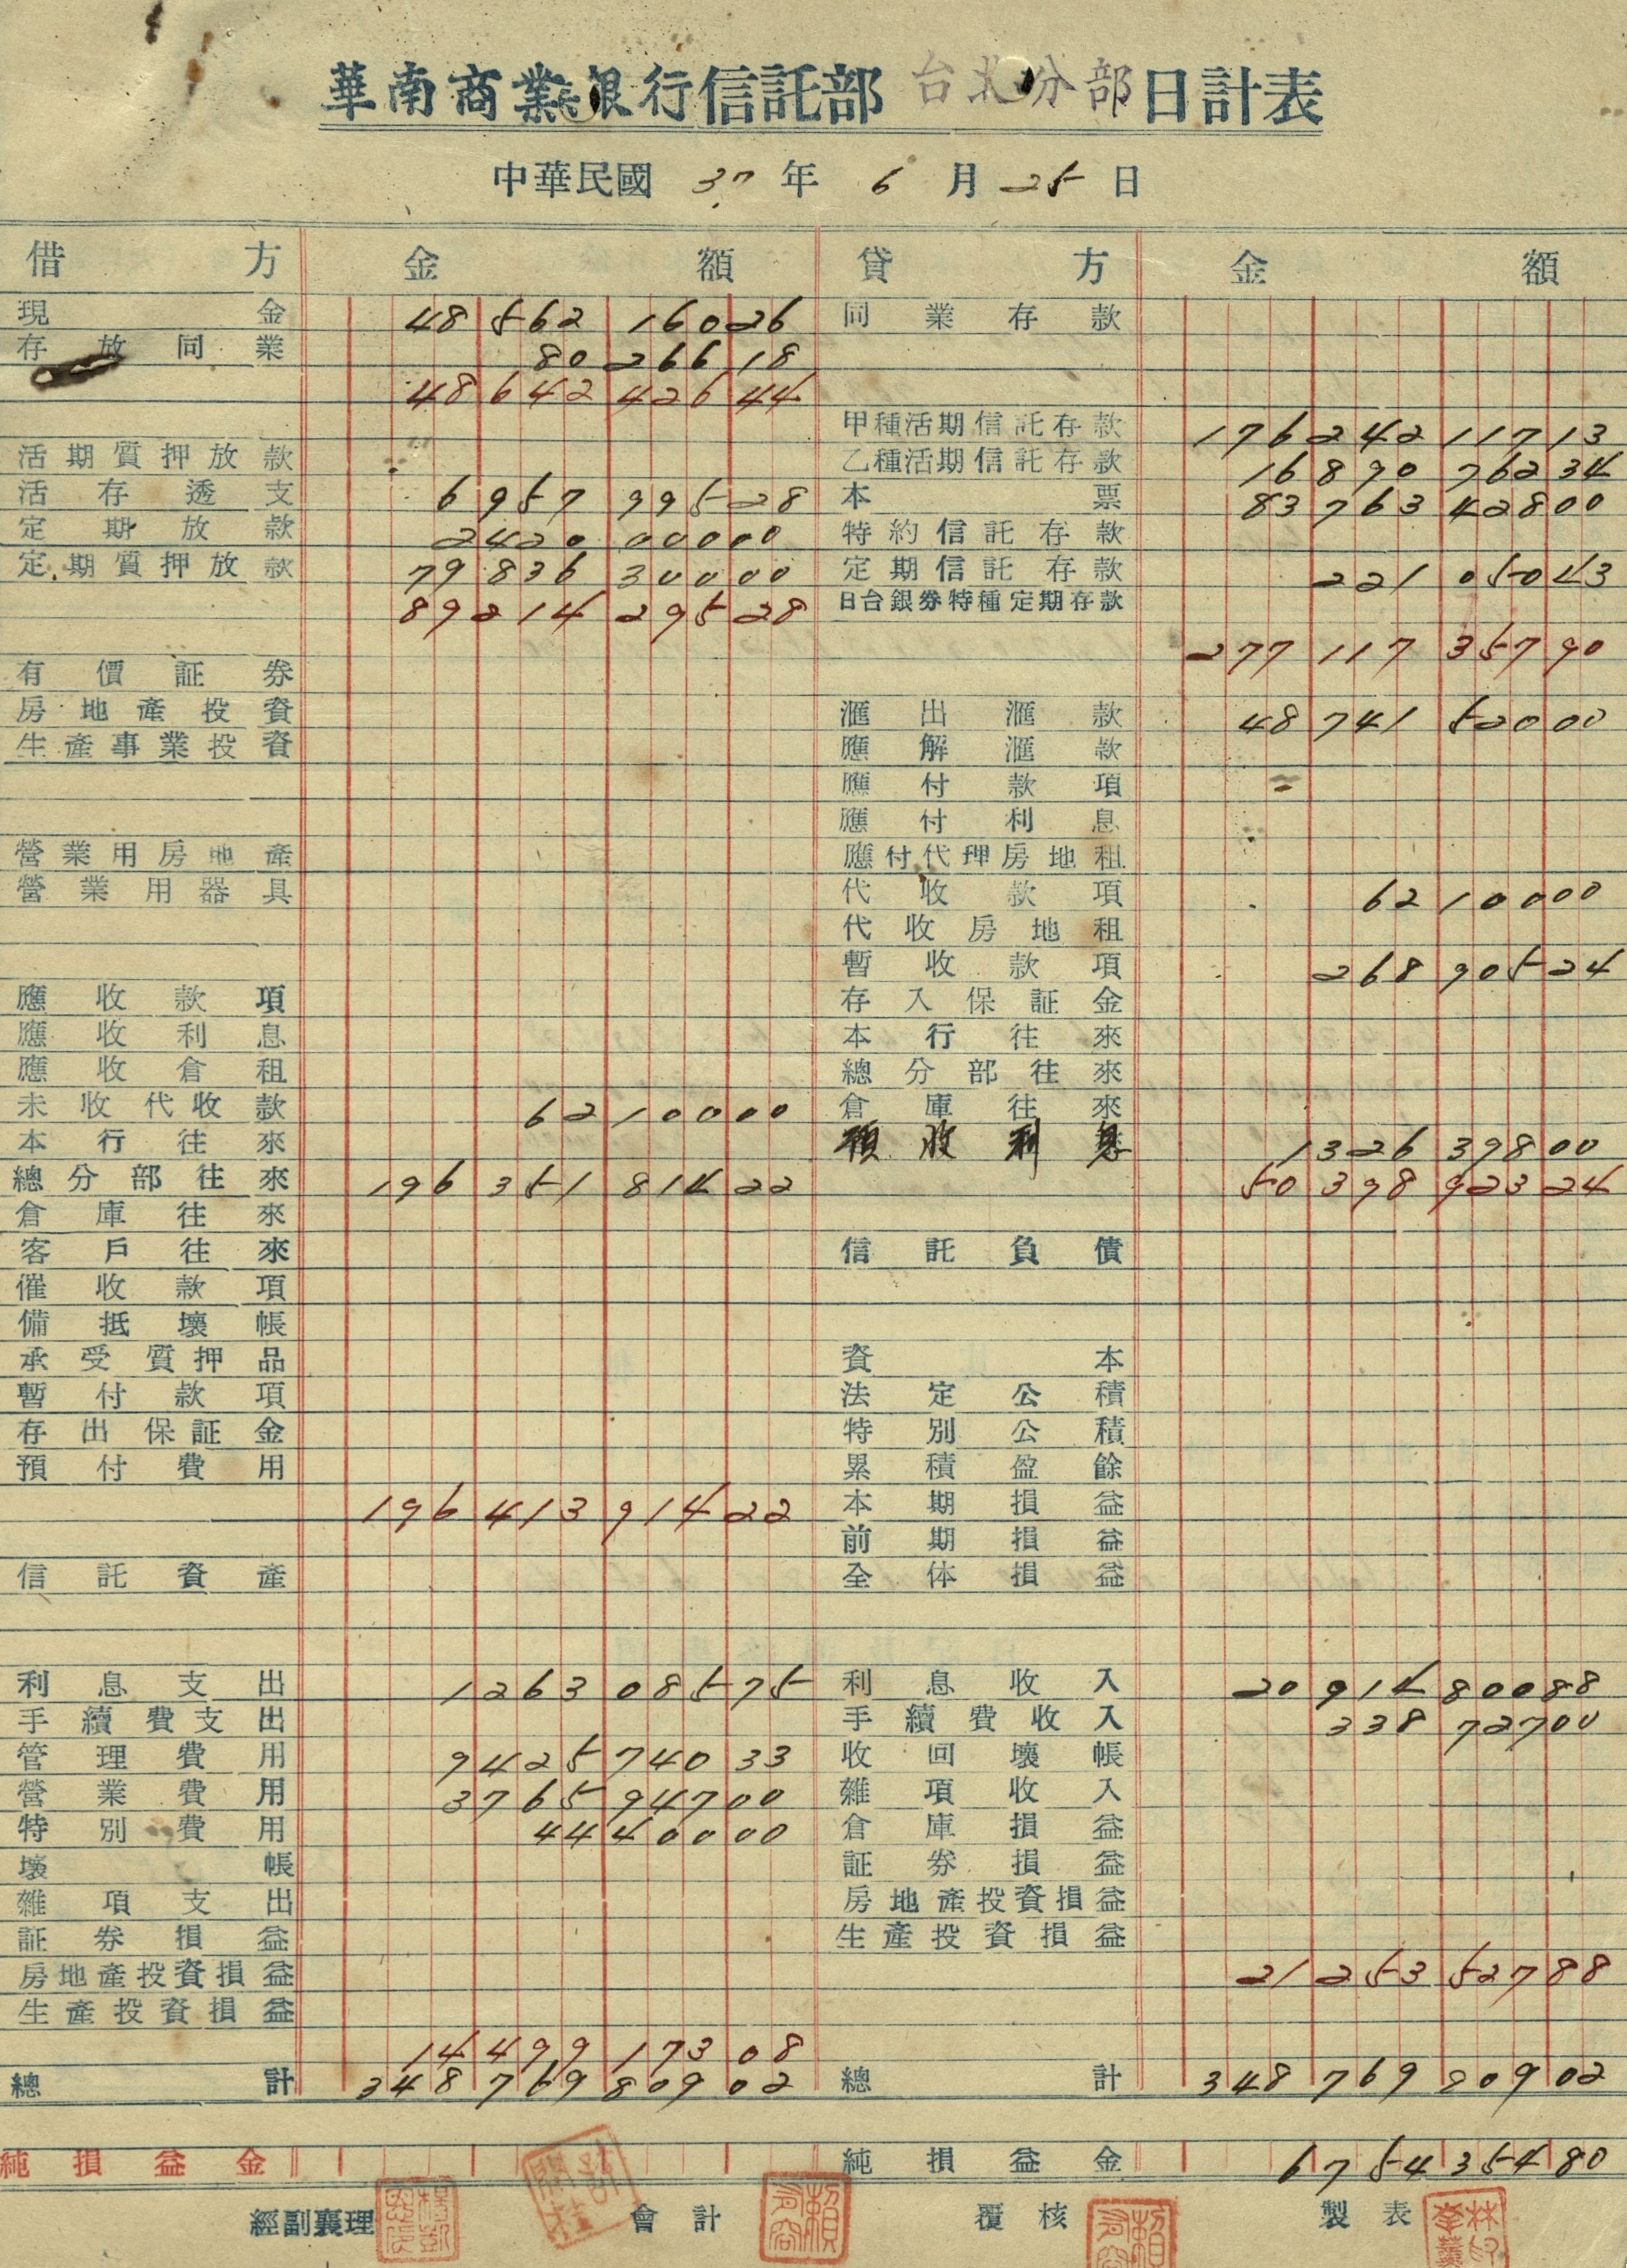 華南商業銀行信託部 台北分部 日計表
中華民國 37 年 6 月 25 日
借方 金額 貸方 金額
現金 48 562 160 26 同業存款
存放同業 80 266 18
48 642 426 44
甲種活期信託存款 176 242 117 13
活期質押放款 乙種活期信託存款 16 890 762 34
活存透支 6 957 995 28 本票 83 763 428 00
定期放款 2420 000 00 特約信託存款
定期質押放款 79 836 300 00 定期信託存款 221 050 43
89 214 295 28 日台銀券特種定期存款
277 117 357 90
有價証券
房地產投資 滙出滙款 48 741 520 00
生產事業投資 應解滙款
應付款項
應付利息
營業用房地產 應付代理房地租
營業用器具 代收款項 62 100 00
代收房地租
暫收款項 268 905 24
應收款項 存入保証金
應收利息 本行往來
應收倉租 總分部往來
未收代收款 62 100 00 倉庫往來
本行往來 預收利息 1 326 398 00
總分部往來 196 351 814 22 50 398 923 24
倉庫往來
客戶往來 信託負債
催收款項
備抵壞帳
承受質押品 資本
暫付款項 法定公積
存出保証金 特別公積
預付費用 累積盈餘
196 413 914 22 本期損益
前期損益
信託資產 全体損益
利息支出 1 263 085 75 利息收入 20 914 800 88
手續費支出 手續費收入 338 727 00
管理費用 9 425 740 33 收回壞帳
營業費用 3 765 947 00 雜項收入
特別費用 44 400 00 倉庫損益
壞帳 証券損益
雜項支出 房地產投資損益
証券損益 生產投資損益
房地產投資損益 21 253 527 88
生產投資損益
14 499 173 08
總計 348 769 809 02 總計 348 769 809 02
純損益金 純損益金 6 754 354 80
經副襄理 會計 覆核 製表